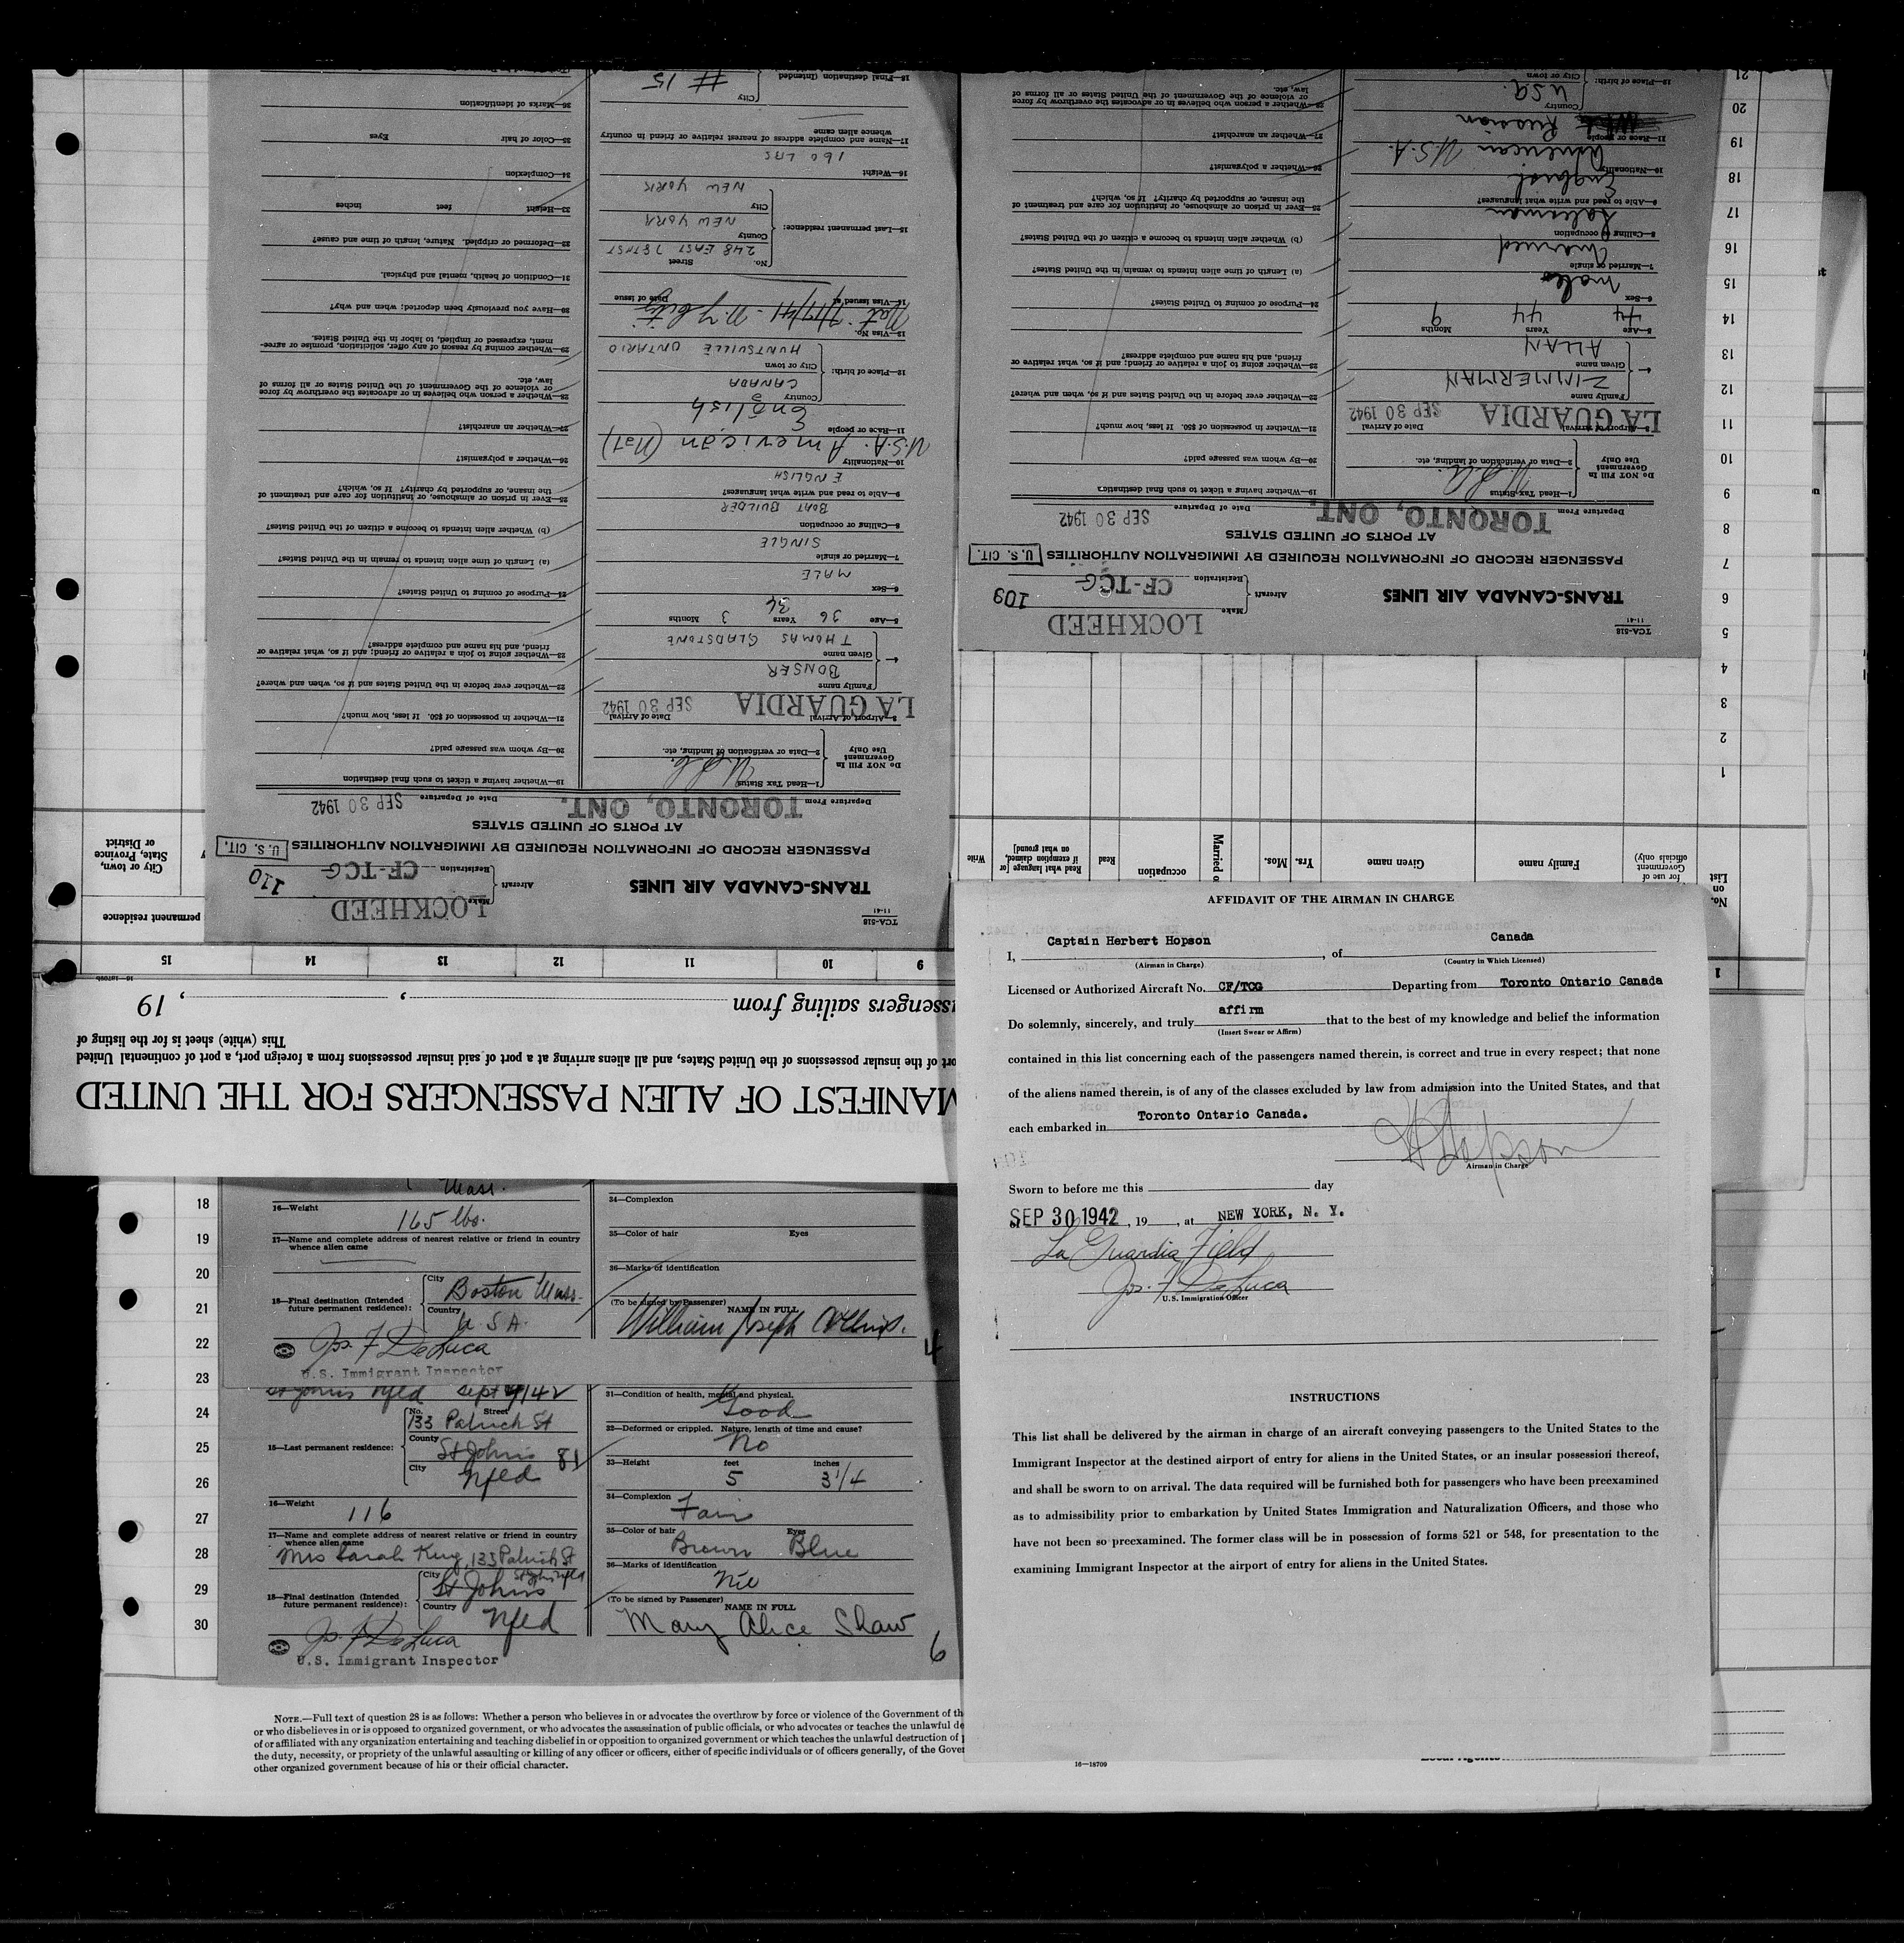 TCA-518
11-41
TRANS-CANADA AIR LINES
Aircraft
Make LOCKHEED
Registration CF-TCG
110
PASSENGER RECORD OF INFORMATION REQUIRED BY IMMIGRATION AUTHORITIES
U. S. CIT.
AT PORTS OF UNITED STATES
Departure From TORONTO, ONT. Date of Departure SEP 30 1942
Do NOT Fill In
Government
Use Only
1—Head Tax Status
2—Data or verification of landing, etc.
3—Airport of Arrival LA GUARDIA Date of Arrival SEP 30 1942
Family name BONSER
Given name THOMAS GLADSTONE
5—Age 36 Years 36 3 Months
6—Sex MALE
7—Married or single SINGLE
8—Calling or occupation BOAT BUILDER
9—Able to read and write what languages? ENGLISH
10—Nationality U.S.A. American (Nat)
11—Race or people English
12—Place of birth:
Country CANADA
City or town HUNTSVILLE ONTARIO
13—Visa No.
14—Visa issued at Date of issue
15—Last permanent residence:
No. Street 248 EAST
County NEW YORK
City NEW YORK
16—Weight 160 LBS
17—Name and complete address of nearest relative or friend in country
whence alien came
18—Final destination (Intended
City # 15
19—Whether having a ticket to such final destination
20—By whom was passage paid?
21—Whether in possession of $50. If less, how much?
22—Whether ever before in the United States and if so, when and where?
23—Whether going to join a relative or friend; and if so, what relative or
friend, and his name and complete address?
24—Purpose of coming to United States?
(a) Length of time alien intends to remain in the United States?
(b) Whether alien intends to become a citizen of the United States?
25—Ever in prison or almshouse, or institution for care and treatment of
the insane, or supported by charity? If so, which?
26—Whether a polygamist?
27—Whether an anarchist?
28—Whether a person who believes in or advocates the overthrow by force
or violence of the Government of the United States or all forms of
law, etc.
29—Whether coming by reason of any offer, solicitation, promise or agree-
ment, expressed or implied, to labor in the United States.
30—Have you previously been deported; when and why?
31—Condition of health, mental and physical.
32—Deformed or crippled. Nature, length of time and cause?
33—Height feet inches
34—Complexion
35—Color of hair Eyes
36—Marks of identification
TCA-518
11-41
TRANS-CANADA AIR LINES
Aircraft
Make LOCKHEED
Registration CF-TCG
109
PASSENGER RECORD OF INFORMATION REQUIRED BY IMMIGRATION AUTHORITIES
U. S. CIT.
AT PORTS OF UNITED STATES
Departure From TORONTO, ONT. Date of Departure SEP 30 1942
Do NOT Fill In
Government
Use Only
1—Head Tax Status
2—Data or verification of landing, etc.
3—Airport of Arrival LA GUARDIA Date of Arrival SEP 30 1942
Family name ZIMMERMAN
Given name ALLAN
5—Age 44 Years 44 9 Months
6—Sex Male
7—Married or single Married
8—Calling or occupation Salesman
9—Able to read and write what languages? English
10—Nationality American U.S.A.
11—Race or people Russian
12—Place of birth:
Country USA.
City or town
19—Whether having a ticket to such final destination
20—By whom was passage paid?
21—Whether in possession of $50. If less, how much?
22—Whether ever before in the United States and if so, when and where?
23—Whether going to join a relative or friend; and if so, what relative or
friend, and his name and complete address?
24—Purpose of coming to United States?
(a) Length of time alien intends to remain in the United States?
(b) Whether alien intends to become a citizen of the United States?
25—Ever in prison or almshouse, or institution for care and treatment of
the insane, or supported by charity? If so, which?
26—Whether a polygamist?
27—Whether an anarchist?
28—Whether a person who believes in or advocates the overthrow by force
or violence of the Government of the United States or all forms of
law, etc.
MANIFEST OF ALIEN PASSENGERS FOR THE UNITED
port of the insular possessions of the United States, and all aliens arriving at a port of said insular possessions from a foreign port, a port of continental United
This (white) sheet is for the listing of
ssengers sailing from , , 19
9 10 11 12 13 14 15
permanent residence
City or town,
State, Province
or District
No.
on
List
for use of
Government
officials only)
Family name
Given name
Yrs.
Mos.
Married o
occupation
Read
Read what language [or
if exemption claimed,
on what ground]
Write
1
2
3
4
5
6
7
8
9
10
11
12
13
14
15
16
17
18
19
20
21
AFFIDAVIT OF THE AIRMAN IN CHARGE
I, Captain Herbert Hopson, of Canada
(Airman in Charge) (Country in Which Licensed)
Licensed or Authorized Aircraft No. CF/TCG Departing from Toronto Ontario Canada
Do solemnly, sincerely, and truly affirm that to the best of my knowledge and belief the information
(Insert Swear or Affirm)
contained in this list concerning each of the passengers named therein, is correct and true in every respect; that none
of the aliens named therein, is of any of the classes excluded by law from admission into the United States, and that
each embarked in Toronto Ontario Canada.
H Hopson
Airman in Charge
Sworn to before me this day
of SEP 30 1942, 19 , at NEW YORK, N. Y.
La Guardia Field
Jos. F DeLuca
U.S. Immigration Officer
INSTRUCTIONS
This list shall be delivered by the airman in charge of an aircraft conveying passengers to the United States to the
Immigrant Inspector at the destined airport of entry for aliens in the United States, or an insular possession thereof,
and shall be sworn to on arrival. The data required will be furnished both for passengers who have been preexamined
as to admissibility prior to embarkation by United States Immigration and Naturalization Officers, and those who
have not been so preexamined. The former class will be in possession of forms 521 or 548, for presentation to the
examining Immigrant Inspector at the airport of entry for aliens in the United States.
16—18709
18
19
20
21
22
23
24
25
26
27
28
29
30
Mass.
16—Weight 165 lbs.
17—Name and complete address of nearest relative or friend in country
whence alien came
18—Final destination (Intended
future permanent residence):
City Boston Mass.
Country U S A.
Jos. F DeLuca
U.S. Immigrant Inspector
34—Complexion
35—Color of hair Eyes
36—Marks of identification
(To be signed by Passenger)
NAME IN FULL
William Joseph Collins.
4
St Johns Nfld Sept 9/42
15—Last permanent residence:
No. Street 133 Patrick St
County St Johns
City Nfld
81
16—Weight 116
17—Name and complete address of nearest relative or friend in country
whence alien came
Mrs Sarah King, 133 Patrick St
St Johns Nfld
18—Final destination (Intended
future permanent residence):
City St Johns
Country Nfld
Jos. F DeLuca
U.S. Immigrant Inspector
31—Condition of health, mental and physical.
Good
32—Deformed or crippled. Nature, length of time and cause?
No
33—Height feet 5 inches 3 1/4
34—Complexion Fair
35—Color of hair Brown Eyes Blue
36—Marks of identification
Nil
(To be signed by Passenger)
NAME IN FULL
Mary Alice Shaw
6
NOTE.—Full text of question 28 is as follows: Whether a person who believes in or advocates the overthrow by force or violence of the Government of th
or who disbelieves in or is opposed to organized government, or who advocates the assassination of public officials, or who advocates or teaches the unlawful de
of or affiliated with any organization entertaining and teaching disbelief in or opposition to organized government or which teaches the unlawful destruction of p
the duty, necessity, or propriety of the unlawful assaulting or killing of any officer or officers, either of specific individuals or of officers generally, of the Gover
other organized government because of his or their official character.